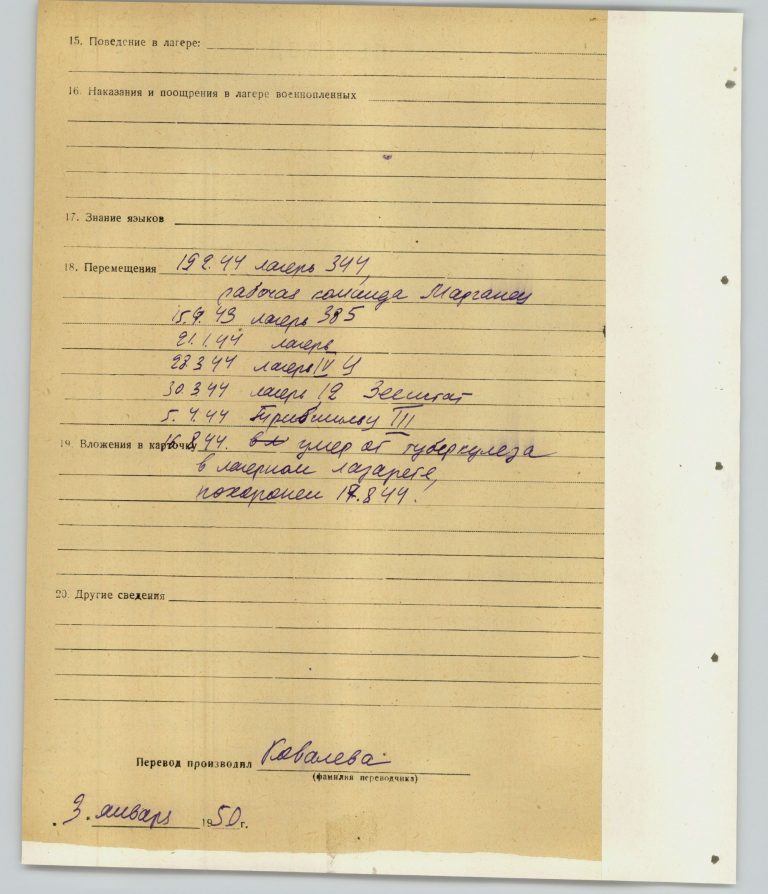 15. Поведение в лагере:
16. Наказания и поощрения в лагере военнопленных
17. Знание языков
18. Перемещения 19 2.44 лагерь 344,
рабочая команда Марганец
15.9.43 лагерь 385
21.1.44 лагерь
28.3 44 лагерь IV Ц
30.3 44 лагерь 12
5.4.44 III
19. Вложения в карточку 16.8.44. умер от туберкулеза
в лагерном лазарете,
похоронен 17.8.44.
20. Другие сведения
Перевод производил Ковалева
(фамилия переводчика)
3. январь 1950 г.